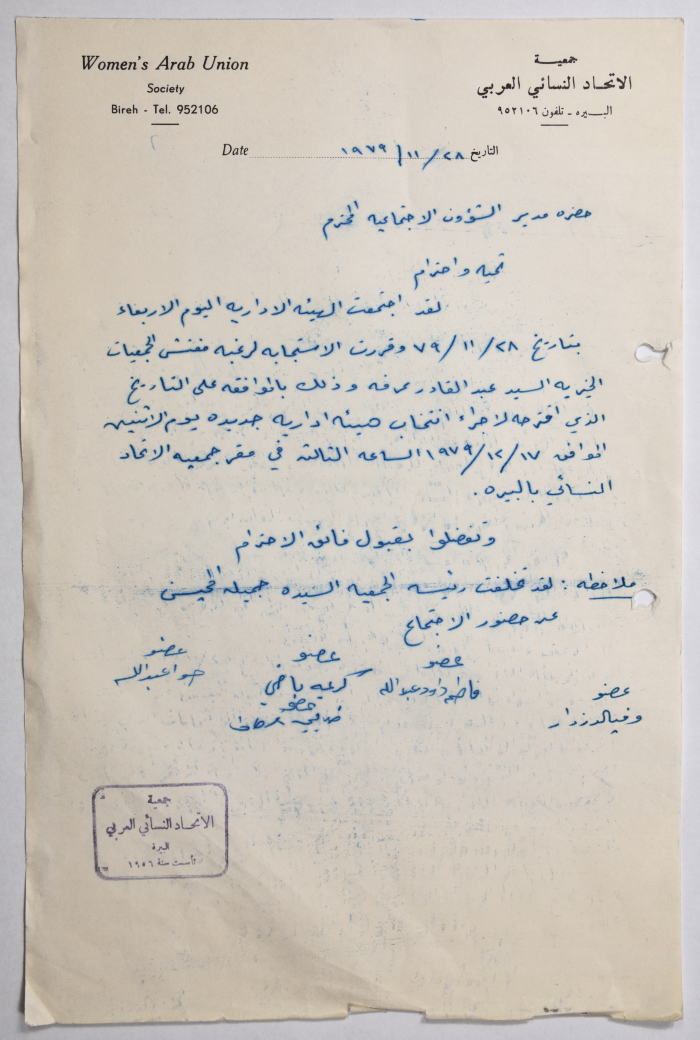 Women's Arab Union
Society
Bireh - Tel. 952106
جمعيـــة
الاتحـاد النسـائي العربي
البـــيره - تلفون ٩٥٢١٠٦
Date ١٩٧٩/١١/٢٨ التاريخ
حضره مدير الشؤون الاجتماعيه المحترم
تحيه واحترام
لقد اجتمعت الهيئه الاداريه اليوم الاربعاء
بتاريخ ٧٩/١١/٢٨ وقررت الاستجابه لرغبه مفتش الجمعيات
الخيريه السيد عبد القادر عرفه وذلك بالموافقه على التاريخ
الذي اقترحه لاجراء انتخاب هيئه اداريه جديده يوم الاثنين
الموافق ١٩٧٩/١٢/١٧ الساعه الثالثه في مقر جمعيه الاتحاد
النسائي بالبيره.
وتفضلوا بقبول فائق الاحترام
ملاحظه : لقد تخلفت رئيسه الجمعيه السيده جميله
عن حضور الاجتماع
عضو
عضو
عضو
عضو
فاطمه داود عبدالله
كريمه
عبدالله
عضو
جمعية
الاتحـاد النسائي العربي
البيرة
تأسست سنة ١٩٥٦